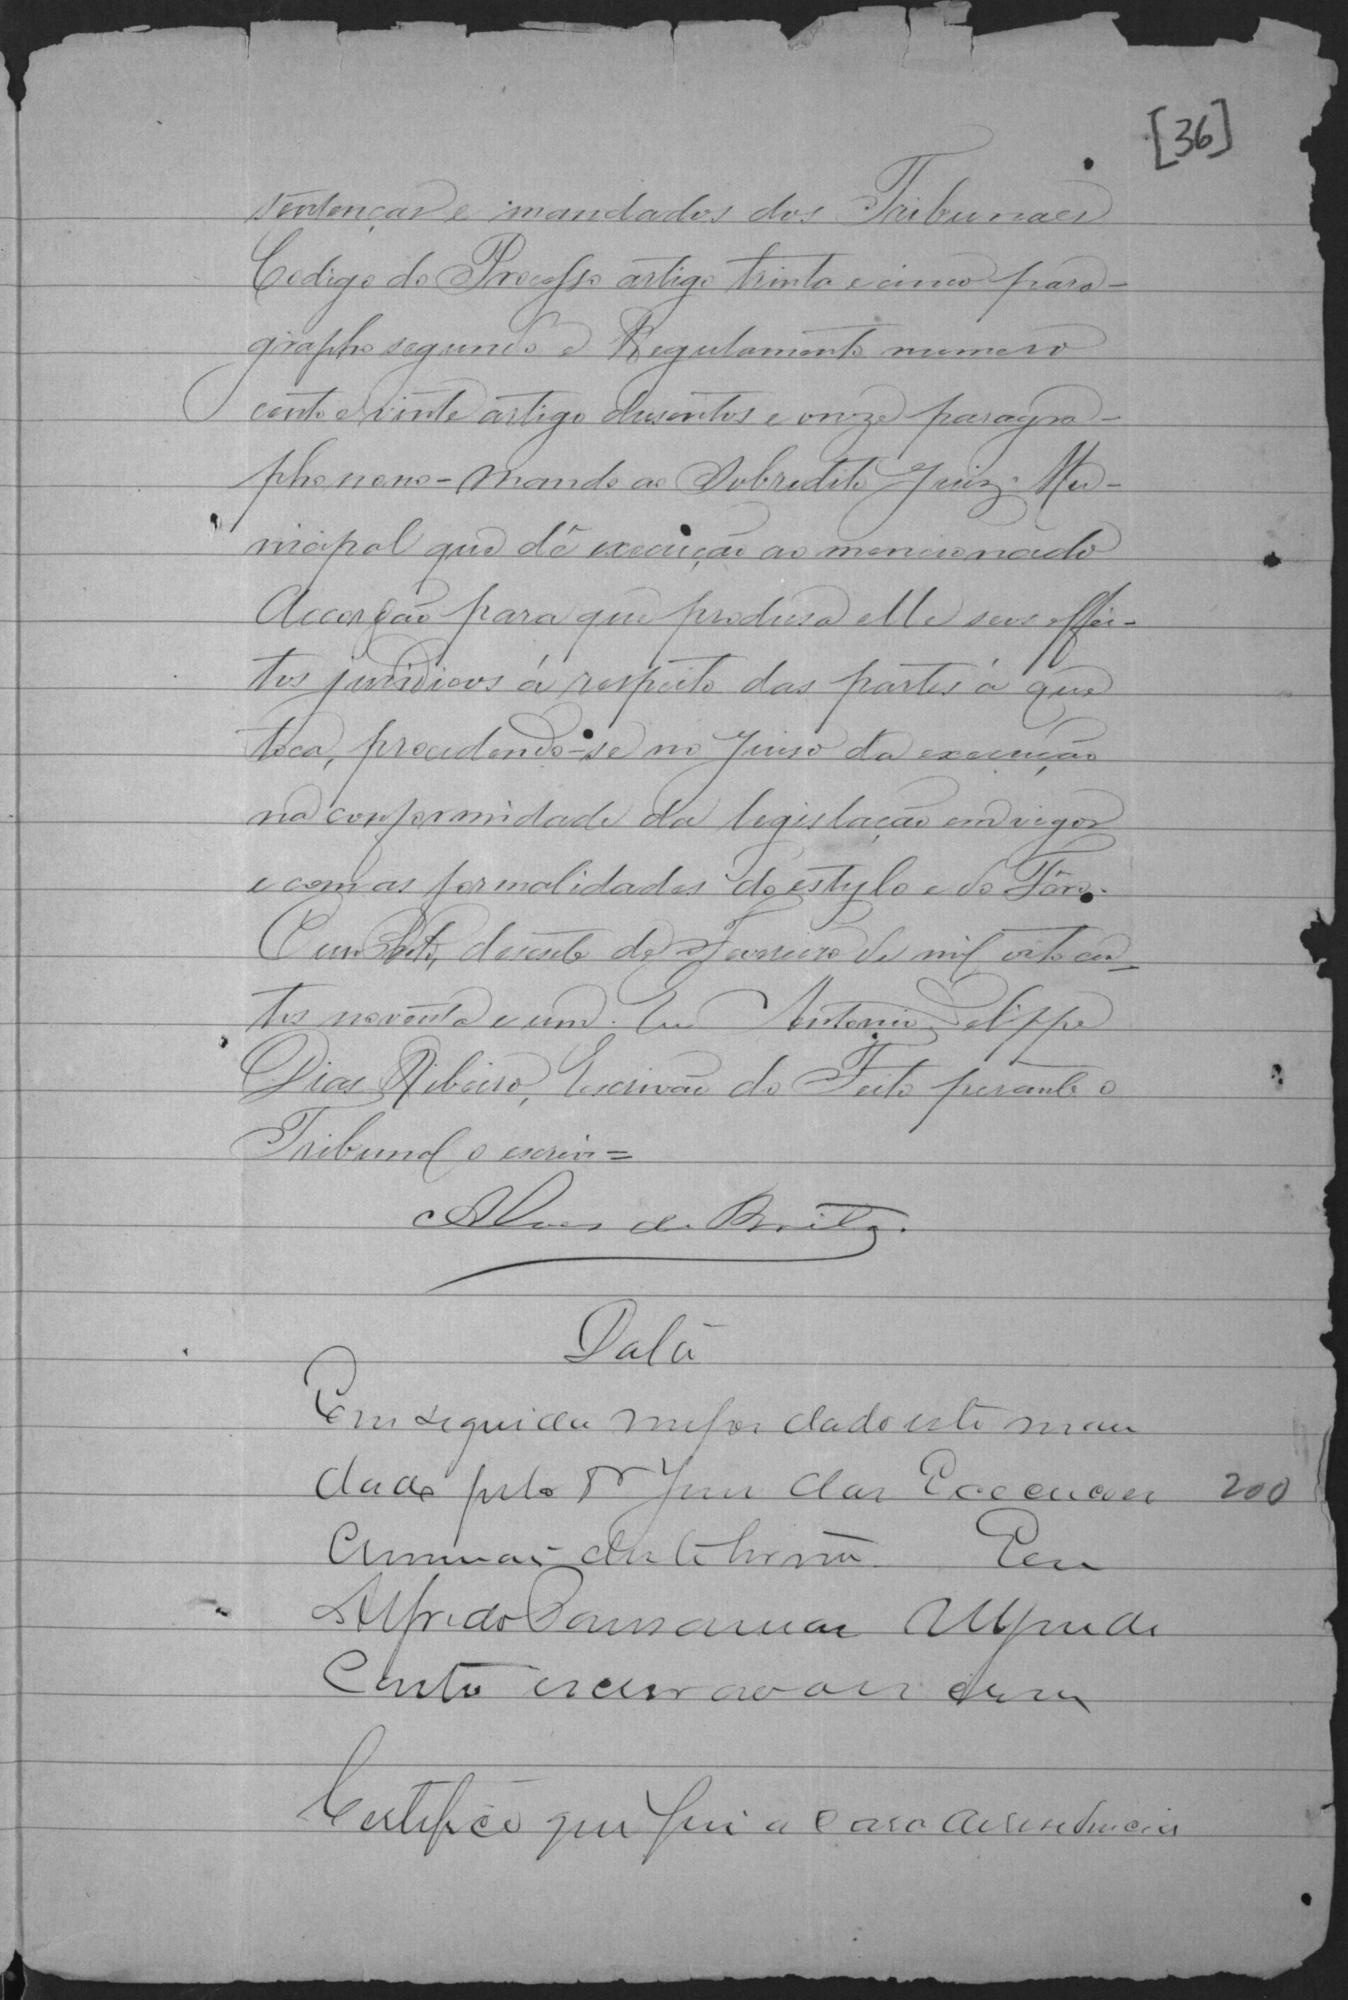 [36]
sentenças e mandados dos Tribunaes
Codigo do Processo artigo trinta e cinco para-
grapho segundo e Regulamento numero
cento e vinte artigo dusentos e onze paragra-
pho nono - Mando ao Sobredito Juiz Mu-
nicipal que dê execução ao mencionado
Accordão para que produsa elle seus effei-
tos juridicos á respeito das partes á que
toca, procedendo-se no Juiso da execução
na conformidade da legislação em vigor
e com as formalidades do estylo e do Fôro.
Ouro Preto, desesete de Fevereiro de mil oitocen-
tos noventa e um. Eu Antonio Felippe
Dias Ribeiro, Escrivão do Feito perante o
Tribunal o escrivi=
Alves de Brito.
Data
Em seguida me foi dado este man
dado pelo Dr Juiz das Execucoes 200
Criminaes deste termo. Eu
Alfredo
Couto escrivão
Certifico que fui a casa de residencia